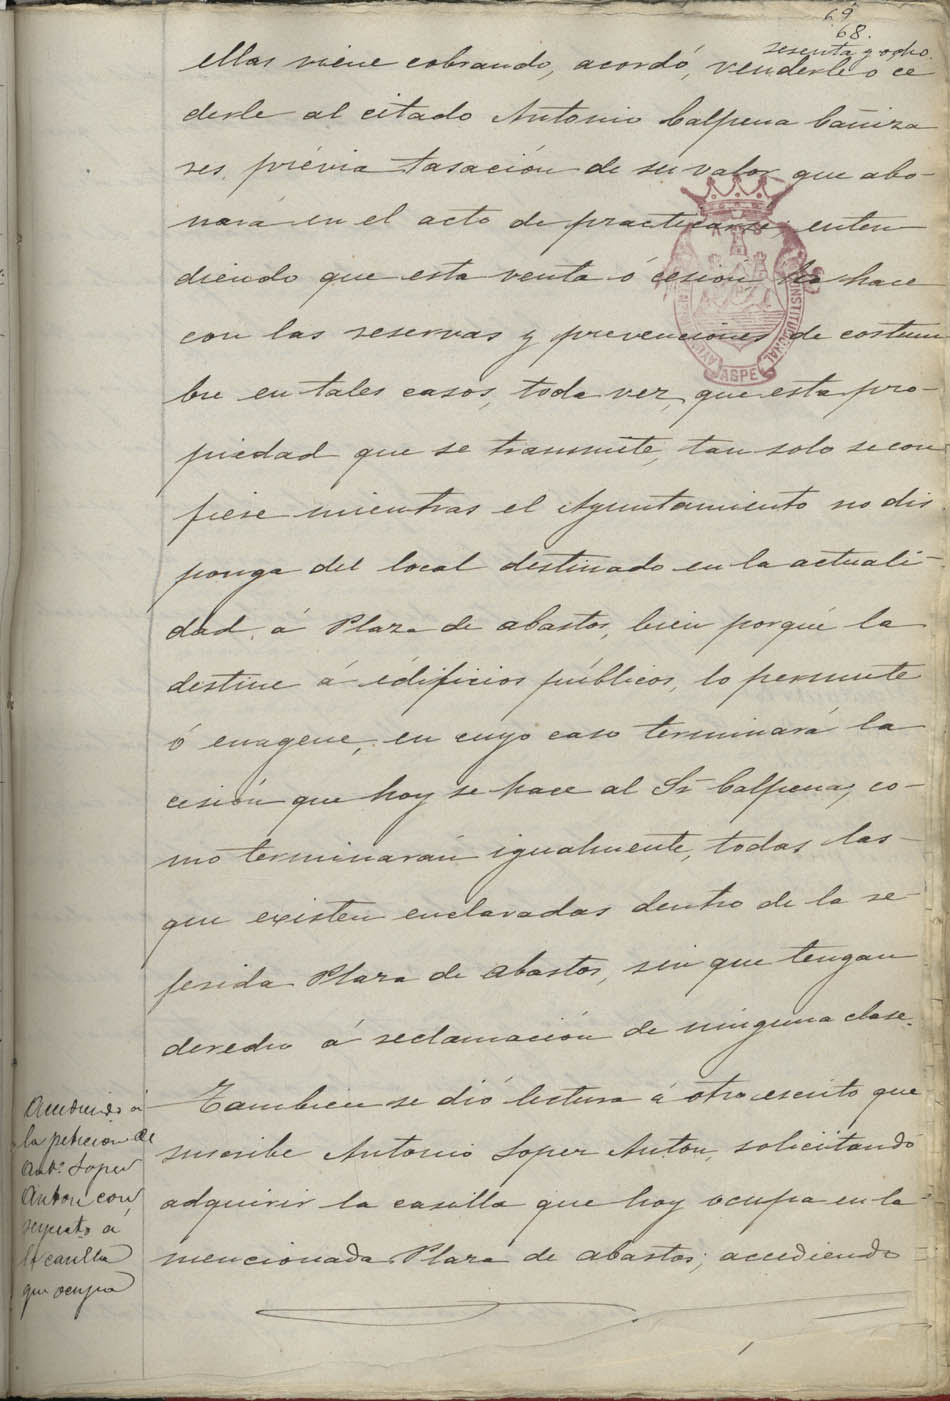 69
68.
sesenta y ocho
ellas viene cobrando, acordó, venderle o ce
derle al citado Antonio Calpena Cañiza
res, prévia tasación de su valor que abo-
nará en el acto de practicarse; enten
diendo que esta venta ó cesión la hace
con las reservas y prevenciones de costum
bre en tales casos, toda vez, que esta pro-
piedad que se transmite, tan solo se con
fiere mientras el Ayuntamiento no dis
ponga del local destinado en la actuali-
dad, á Plaza de abastos, bien porqué la
destine á edificios públicos, lo permute
ó enagene, en cuyo caso terminará la
cesión que hoy se hace al Sr Calpena, co-
mo terminarán igualmente, todas las
que existen enclavadas dentro de la re-
ferida Plaza de abastos, sin que tengan
derecho á reclamación de ninguna clase.
Tambien se dió lectura á otro escrito que
suscribe Antonio Lopez Anton, solicitando
adquirir la casilla que hoy ocupa en la
mencionada Plaza de abastos; accediendo
Accediendo á
la peticion de
Ant.º Lopez
Anton con
respecto á
la casilla
que ocupa
AYUN
INSTITUCIONAL
ASPE